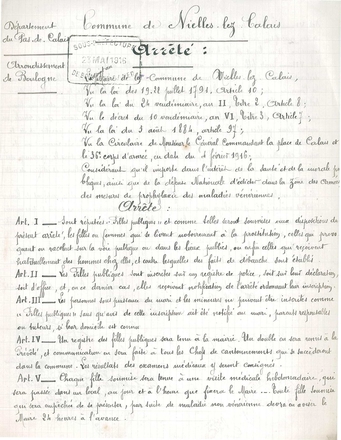 Département
du Pas-de-Calais
Commune de Nielles-lez-Calais
Arrondissement
de Boulogne
SOUS-PREFECTURE
23 MAI 1916
Arrêté:
Maire de la Commune de Nielles-lez-Calais,
Vu la loi des 19-22 juillet 1791, Article 10;
Vu la loi du 24 vendémiaire, an II, titre 2, Article 8;
Vu le décret du 10 vendémiaire, an VI, titre 3, Article 7;
Vu la loi du 5 août 1884, article 97;
Vu la Circulaire de Monsieur le Général Commandant la place de Calais et
le 36e corps d'armée, en date du 4 février 1916;
Considérant qu'il importe dans l'intérêt de la Santé et de la morale pu-
bliques, ainsi que de la défense Nationale d'édicter dans la Zone des Armées
des mesures de prophylaxie des maladies vénériennes,
Arrête:
Art. I — Sont réputées "Filles publiques" et comme telles seront soumises aux dispositions du
présent arrêté, les filles ou femmes qui se livrent notoirement à la prostitution, celles qui provo
quent ou racolent sur la voie publique ou dans les lieux publics, ou enfin celles qui reçoivent
habituellement des hommes chez elles, et contre lesquelles des faits de débauche sont établis.
Art. II — Les Filles publiques sont inscrites sur un registre de police, soit sur leur déclaration,
soit d'office et, en ce dernier cas, elles reçoivent notification de l'arrêté ordonnant leur inscription.
Art. III — Les personnes sous puissance de mari et les mineures ne peuvent être inscrites comme
"Filles publiques" sans qu'avis de cette inscription ait été notifié au mari, parents responsables
ou tuteurs, si leur domicile est connu.
Art. IV — Un registre des filles publiques sera tenu à la mairie. Un double en sera remis à la
Prévôté, et communication en sera faite à tous les Chefs de cantonnements qui se succèderont
dans la commune. Les résultats des examens médicaux y seront consignés.
Art. V — Chaque fille soumise sera tenue à une visite médicale hebdomadaire, qui
sera passée dans un local, au jour et à l'heure que fixera le Maire. Toute fille soumise
qui sera empêchée de se présenter, par suite de maladie non vénérienne devra en aviser le
Maire 24 heures à l'avance.